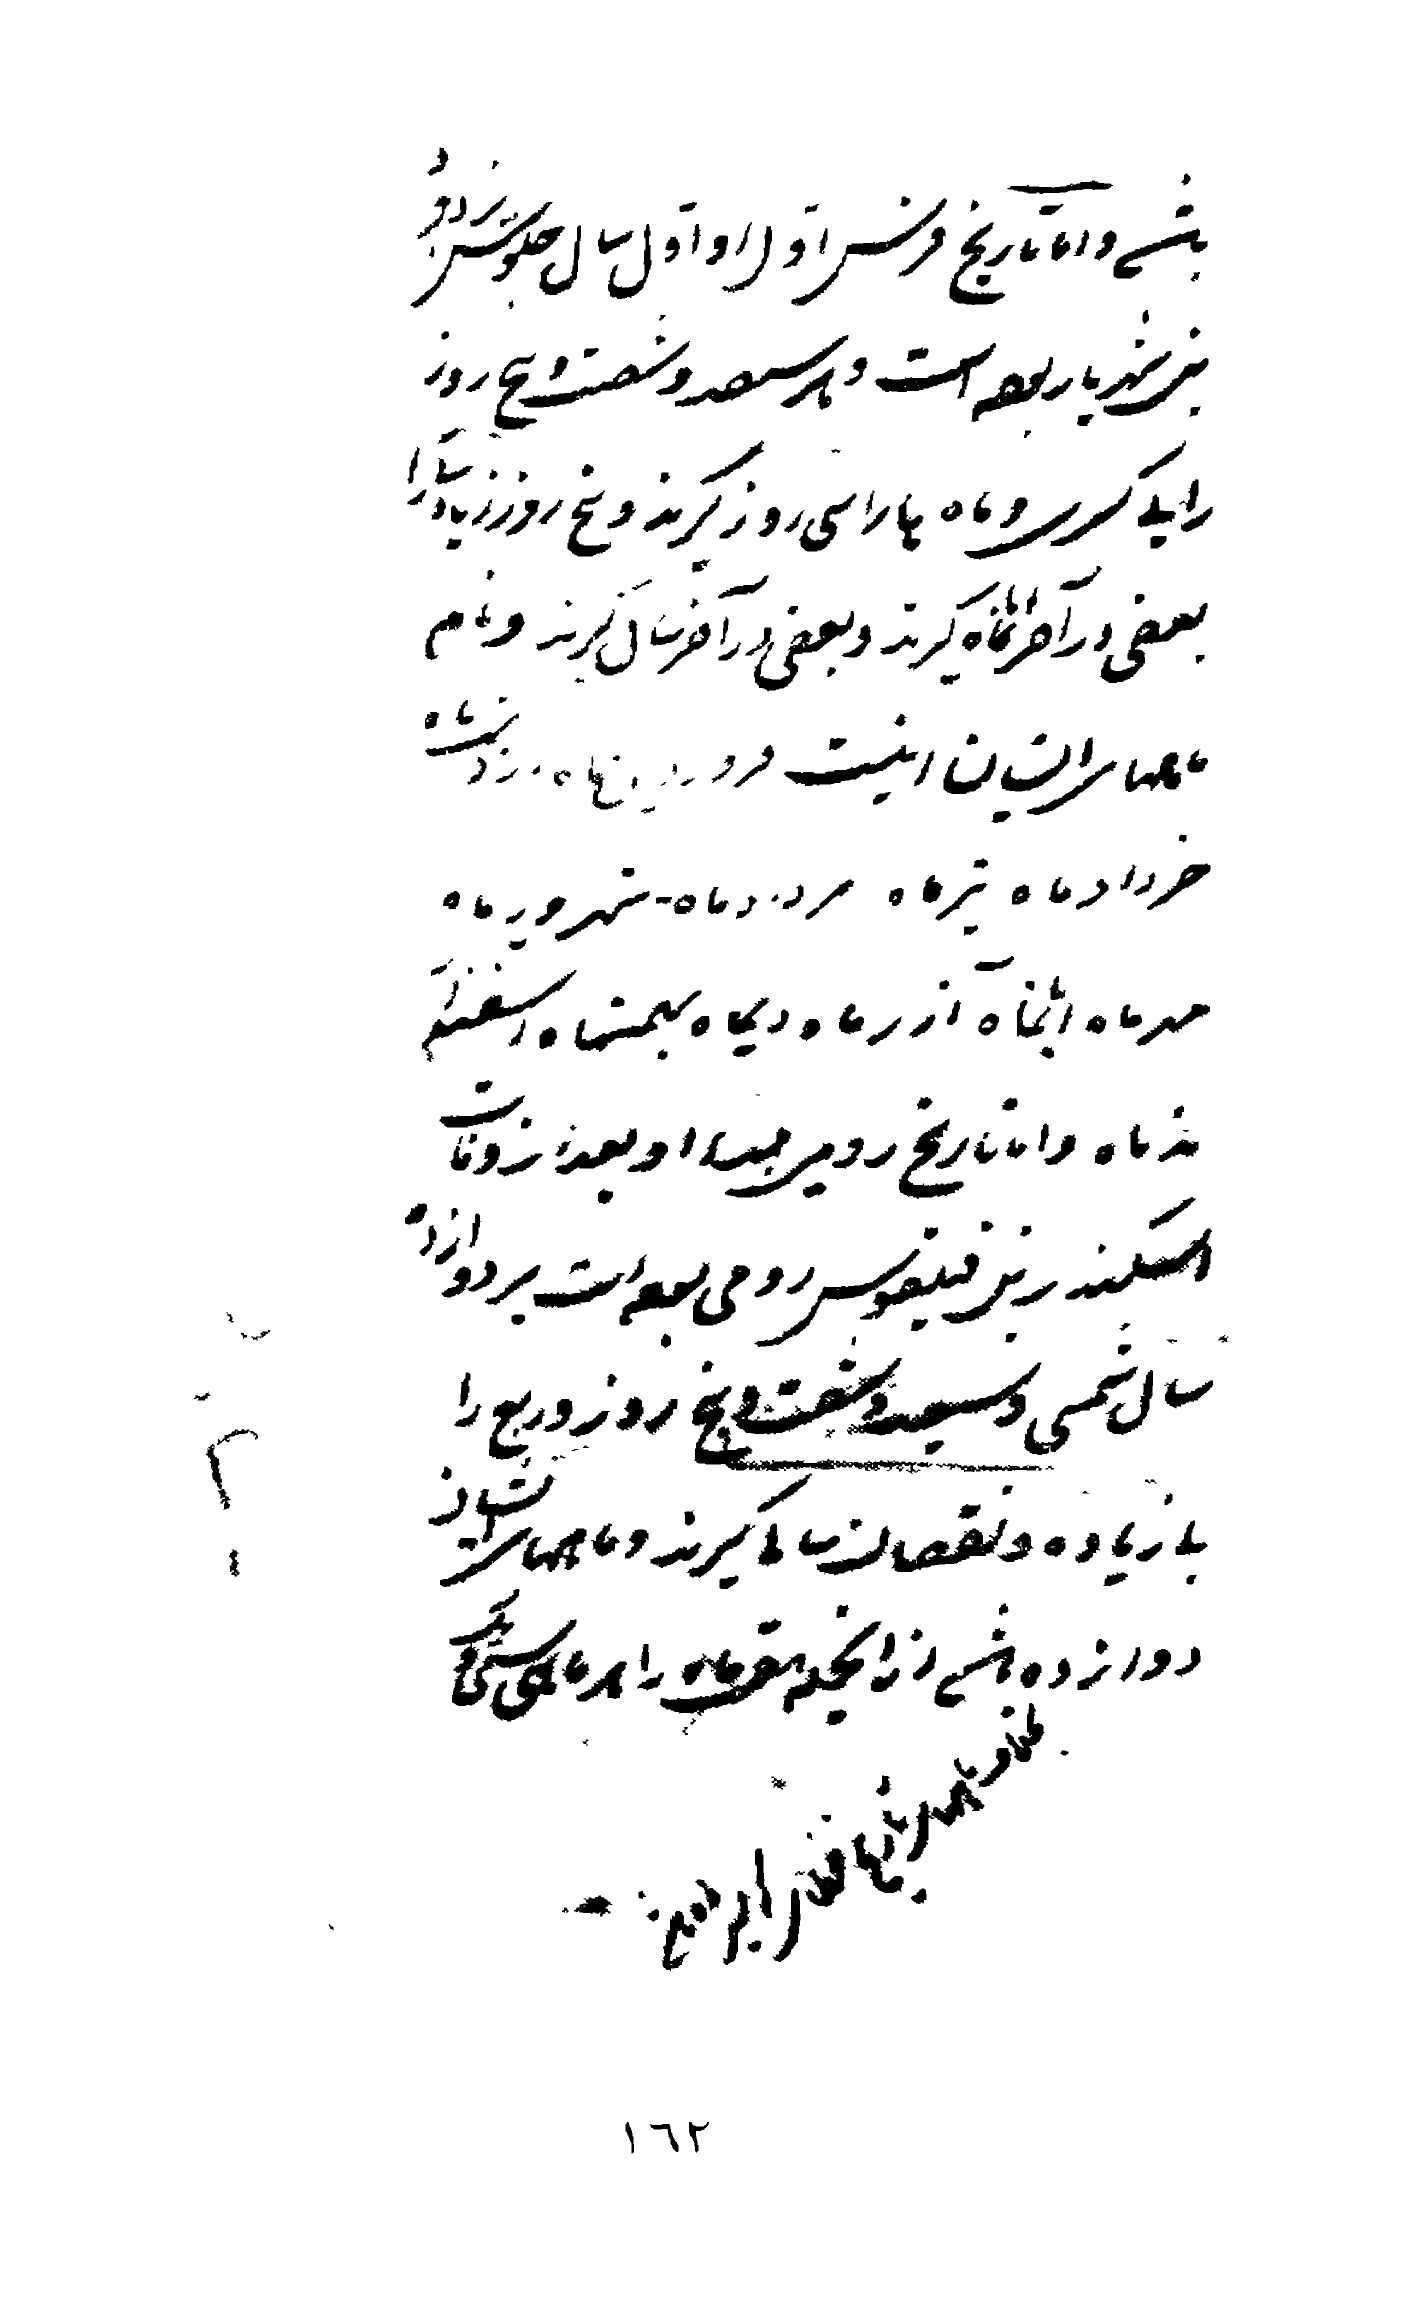 باشد و اما تاریخ فرس اول او اول سال جلوس یزدجرد
بن شهریار بوده است و هر سیصد و شصت و پنج روز
را یکی گیرند و ماه ها را سی روز گیرند و پنج روز زیادتی را
بعضی در آخر آبانماه گیرند و بعضی در آخر سال گیرند و نام
ماههای ایشان اینست فروردین ماه اردیبهشت ماه
خرداد ماه تیر ماه مرداد ماه شهریور ماه
مهر ماه آبانماه آذر ماه دیماه بهمنماه اسفندار
مذ ماه و اما تاریخ رومی مبداء او بعد از وفات
اسکندر بن فیلقوس رومی بوده است بر دوازده
سال شمسی و سیصد و شصت و پنج روز و ربع را
بی زیاده و نقصان سالی گیرند و ماههای ایشان نیز
دوازده باشد از آنجمله هفت ماه را هر ماهی سی و یک
١٦٢